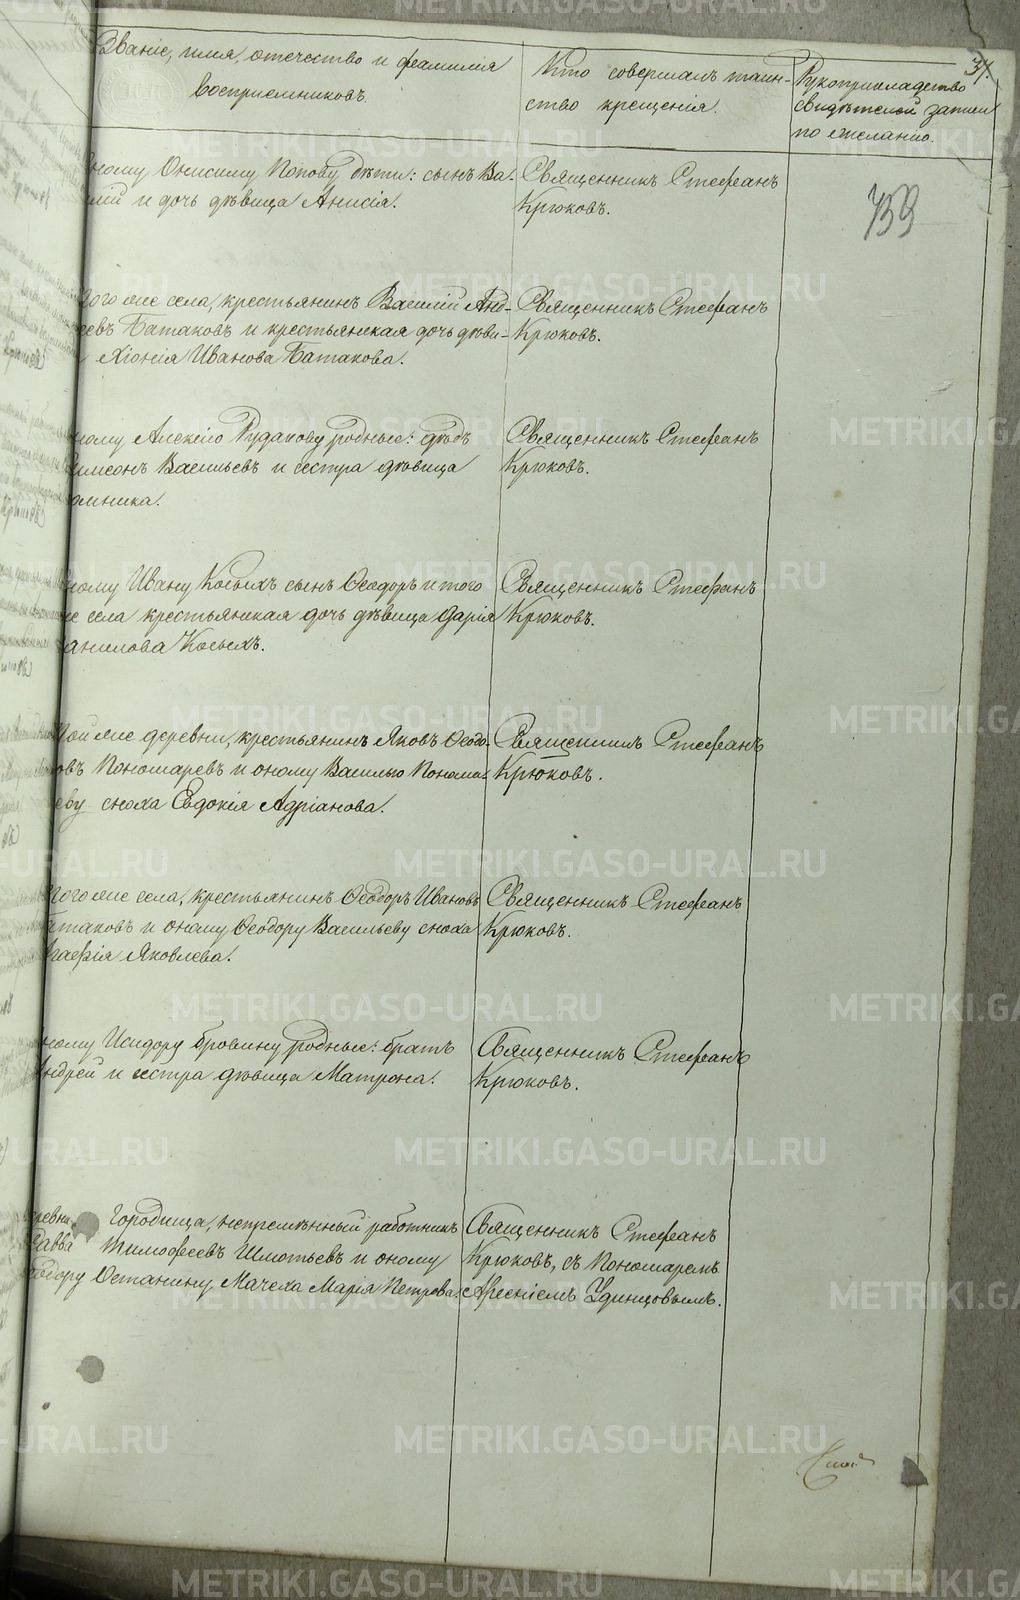 37.
Званіе, имя, отечество и фамилія
Воспріемниковъ.
Кто совершалъ таин-
ство крещенія.
Рукоприкладство
свидѣтелей записи
по желанію.
759
ному Онисиму Попову дѣти: сынъ Ва-
лій и дочь дѣвица Анисія.
Священникъ Стефанъ
Крюковъ.
того же села, крестьянинъ Василій Анд-
евъ Батаковъ и крестьянская дочь дѣви-
Хіонія Иванова Батакова.
Священникъ Стефанъ
Крюковъ.
ному Алексѣю Рудакову родные: дѣдъ
имеонъ Васильевъ и сестра дѣвица
омника.
Священникъ Стефанъ
Крюковъ.
ному Ивану Косыхъ сынъ Ѳеодоръ и того
же села крестьянская дочь дѣвица Дарія
анилова Косыхъ.
Священникъ Стефанъ
Крюковъ.
той же деревни, крестьянинъ Яковъ Ѳеодо-
овъ Пономаревъ и оному Василью Понома-
еву сноха Евдокія Адріанова.
Священникъ Стефанъ
Крюковъ.
того же села, крестьянинъ Ѳеодоръ Ивановъ
атаковъ и оному Ѳеодору Васильеву сноха
гафія Яковлева.
Священникъ Стефанъ
Крюковъ.
ному Исидору Бровину родные: братъ
Андрей и сестра дѣвица Матрона.
Священникъ Стефанъ
Крюковъ.
еревни Городища, непремѣнный работникъ
Савва Тимофеевъ Шмотьевъ и оному
еодору Останину, Мачеха Марія Петрова.
Священникъ Стефанъ
Крюковъ, съ Пономаремъ
Арсеніемъ Удинцовымъ.
METRIKI.GASO-URAL.RU